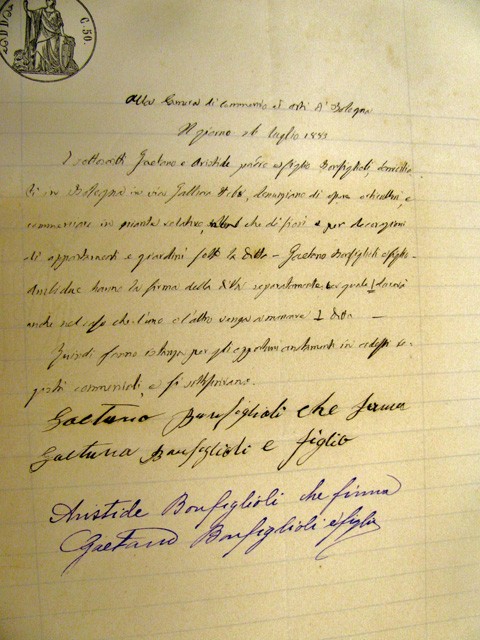 C. 50.
Alla Camera di commercio ed arti di Bologna
Il giorno 26 luglio 1883
I sottoscritti Gaetano e Aristide padre e figlio Bonfiglioli, domicilia
ti in Bologna in via Galliera denunziano di aprire
commerciare in piante che di fiori e per decorazioni
di appartamenti e giardini sotto la ditta - Gaetano Bonfiglioli e figlio -
Ambidue hanno la firma della ditta separatamente la quale
anche nel caso che l'uno o l'altro venga a mancare
Quindi fanno istanza per gli opportuni in codesti re
gistri commerciali, e si sottoscrivono.
Gaetano Bonfiglioli che firma
Gaetano Bonfiglioli e figlio
Aristide Bonfiglioli che firma
Gaetano Bonfiglioli e figlio